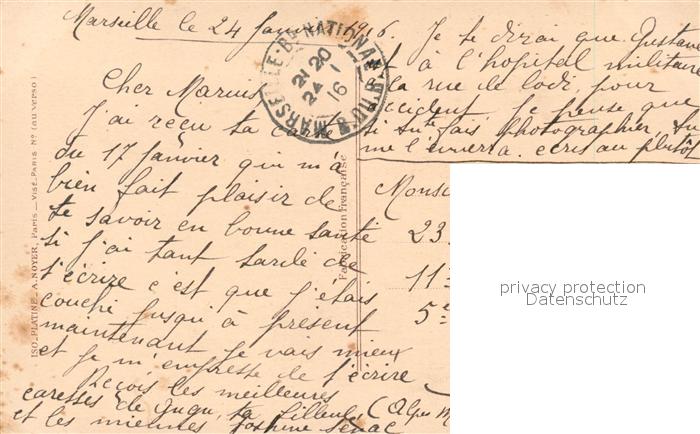 Marseille le 24 Janvier 1916.
Cher Marius
J'ai reçu ta carte
du 17 Janvier qui m'a
bien fait plaisir de
te savoir en bonne santé
si j'ai tant tardé de
t'écrire c'est que j'étais
couché jusqu'à présent
maintenant je vais mieux
et je m'empresse de t'écrire
Reçois les meilleures
caresses de Gugu, ta filleule
et les miennes
Je te dirai que Gustave
est à l'hopital militaire
de la rue de lodi, pour
accident. Je pense que
si tu te fais photographier, tu
me l'enverra. écris au plutôt
Monsi
23
11e
5e
(Alpes M
MARSEILLE-Bd NATIONAL
21 20
24 - 1
16
B.DU RHONE
Fabrication française
ISO-PLATINE _ A.NOYER, Paris _ Visé.Paris No (au verso)
privacy protection
Datenschutz